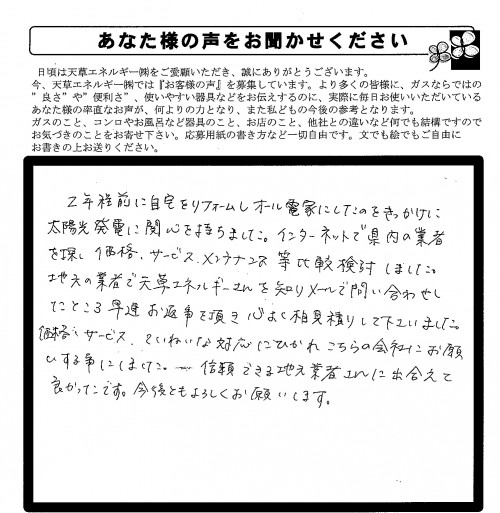 あなた様の声をお聞かせください
日頃は天草エネルギー㈱をご愛顧いただき、誠にありがとうございます。
今、天草エネルギー㈱では『お客様の声』を募集しています。より多くの皆様に、ガスならではの
”良さ”や”便利さ”、使いやすい器具などをお伝えするのに、実際に毎日お使いいただいている
あなた様の率直なお声が、何よりの力となり、また私どもの今後の参考となります。
ガスのこと、コンロやお風呂など器具のこと、お店のこと、他社との違いなど何でも結構ですので
お気づきのことをお寄せ下さい。応募用紙の書き方など一切自由です。文でも絵でもご自由に
お書きの上お送りください。
2年程前に自宅をリフォームしオール電家にしたのをきっかけに
太陽光発電に関心を持ちました。インターネットで県内の業者
を探し価格、サービス、メンテナンス等比較検討しました。
地元の業者で天草エネルギーさんを知りメールで問い合わせし
たところ早速お返事を頂き心よく相見積りして下さいました。
価格、サービス、ていねいな対応にひかれこちらの会社にお願
いする事にしました。信頼できる地元業者さんに出合えて
良かったです。今後ともよろしくお願いします。